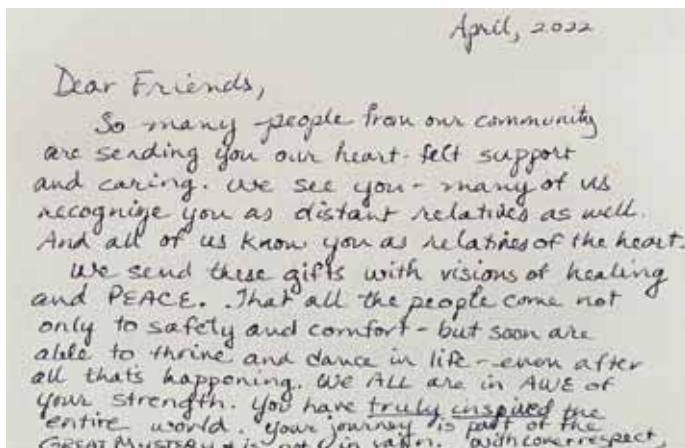 April, 2022
Dear Friends,
So many people from our community
are sending you our heart-felt support
and caring. We see you - many of us
recognize you as distant relatives as well.
And all of us know you as relatives of the heart.
We send these gifts with visions of healing
and PEACE. That all the people come not
only to safety and comfort - but soon are
able to thrive and dance in life - even after
all that's happening. We ALL are in AWE of
your strength. You have truly inspired the
entire world. Your journey is part of the
GREAT MYSTERY & is not in vain. With love respect,